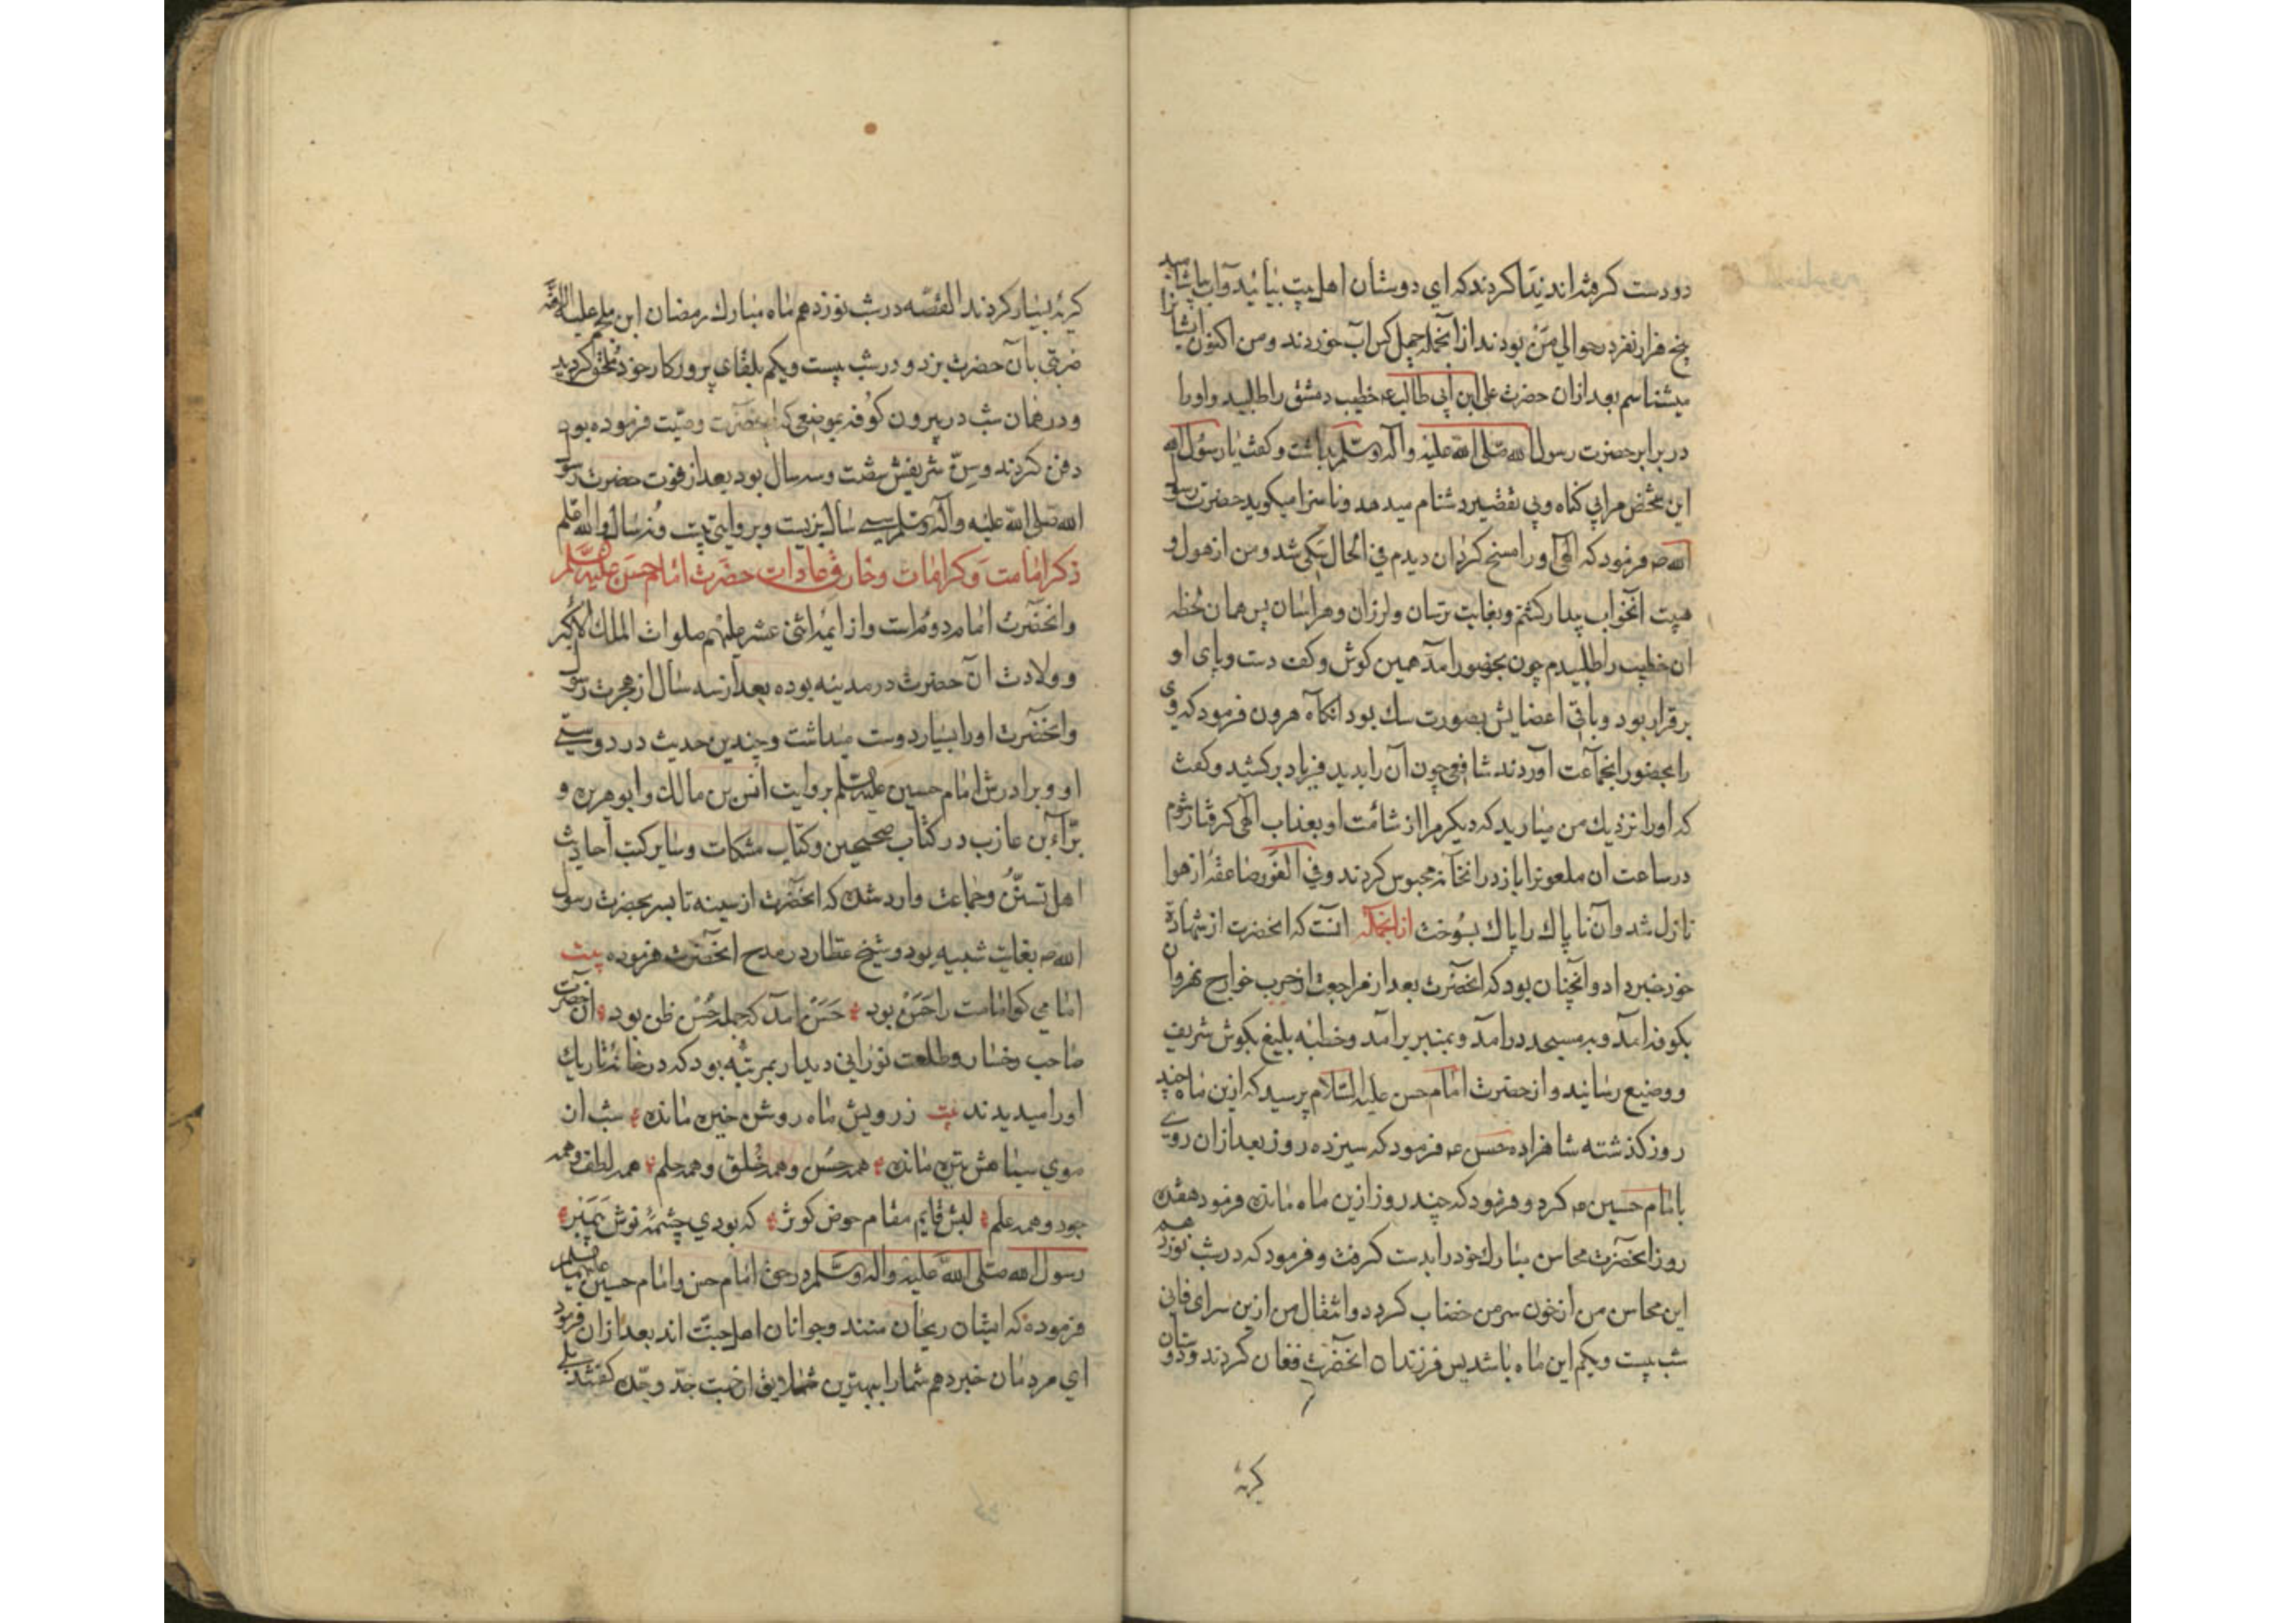 دو دست كرفته اند ندا كردند كه اي دوستان اهل بيت بيائيد و آب بياشاميد
پنج هزار نفر در حوالي من بودند از آنجمله چهل كس آب خوردند و من اكنون ايشانرا
ميشناسم بعد ازان حضرت على ابن ابي طالب ع خطيب دمشق را طلبيد و اورا
در برابر حضرت رسول الله صلى الله عليه وآله وسلم بداشت و كفت يا رسول الله
اين شخص مرا بي كناه و بي تقصير دشنام ميدهد و ناسزا ميكويد حضرت رسول
الله ص فرمود كه الهي اورا مسخ كردان ديدم في الحال سكى شد و من از هول و
هيبت آنخواب بيدار كشتم و بغايت ترسان و لرزان و هراسان پس همان لحظه
ان خطيب را طلبيدم چون بحضور امد همين كوش و كف دست و پاى او
برقرار بود و باقى اعضايش بصورت سك بود انكاه هرون فرمود كه وى
را بحضور انجماعت آوردند شافعي چون آن را بديد فرياد بركشيد و كفت
كه اورا نزديك من مياريد كه ديكر مرا از شامت او بعذاب الهى كرفتار شوم
در ساعت ان ملعونرا باز در انخانه محبوس كردند و في الفور صاعقه از هوا
نازل شد و آن ناپاك را پاك بسوخت ازانجمله انست كه انحضرت از شهادة
خود خبر داد و آنچنان بود كه انحضرت بعد از مراجعت از حرب خوارج نهروان
بكوفه امد و بمسجد درامد و بمنبر برامد و خطبه بليغ بكوش شريف
و وضيع رسانيد و از حضرت امام حسن عليه السلام پرسيد كه ازين ماه چند
روز كذشته شاهزاده حسن ع فرمود كه سيزده روز بعد ازان روي
بامام حسين ع كرد و فرمود كه چند روز ازين ماه مانده فرمود هفده
روز انحضرت محاسن مبارك خود را بدست كرفت و فرمود كه در شب نوزدهم
اين محاسن من از خون سر من خضاب كردد و انتقال من ازين سراى فاني
شب بيست ويكم اين ماه باشد پس فرزندان انحضرت فغان كردند و دوستان
كريه
كريه بسيار كردند القصه در شب نوزدهم ماه مبارك رمضان ابن ملجم عليه اللعنه
ضربتى بان حضرت بزد و در شب بيست ويكم بلقاى پروركار خود ملحق كرديد
و در همان شب در بيرون كوفه بموضعى كه انحضرت وصيت فرموده بود
دفن كردند و سن شريفش شصت وسه سال بود بعد از فوت حضرت رسول
الله صلى الله عليه وآله وسلم سي سال بزيست و بروايتى بيست و نه سال والله اعلم
ذكر امامت و كرامات و خارق عادات حضرت امام حسن عليه السلم
و انحضرت امام دوم است و از ايمه اثنى عشر عليهم صلوات الملك الاكبر
و ولادت آن حضرت در مدينه بوده بعد از سه سال از هجرت رسول
و انحضرت اورا بسيار دوست ميداشت و چندين حديث در دوستى
او و برادرش امام حسين عليه السلم بروايت انس بن مالك و ابو هريره و
براء بن عازب در كتاب صحيحين و كتاب مشكات و ساير كتب احاديث
اهل تسنن و جماعت وارد شده كه انحضرت از سينه تا بسر بحضرت رسول
الله ص بغايت شبيه بود و شيخ عطار در مدح انحضرت فرموده بيت
امامي كو امامت را حسن بود حسن امد كه جمله حسن ظن بود آنحضرت
صاحب رخسار و طلعت نوراني ديدار بمرتبه بود كه در خانه تاريك
اورا ميديدند بيت ز رويش ماه روشن خيره مانده شب ان
موي سياهش تيره مانده همه حسن و همه خلق و همه حلم همه لطف و همه
جود و همه علم لبش قايم مقام حوض كوثر كه بودي چشمه نوش پيمبر
رسول الله صلى الله عليه وآله وسلم در حق امام حسن و امام حسين عليهما السلم
فرموده كه ايشان ريحان منند و جوانان اهل جنت اند بعد ازان فرمود
اي مردمان خبر دهم شما را ببهترين خلايق از جهت جد و جده كفتند بلي